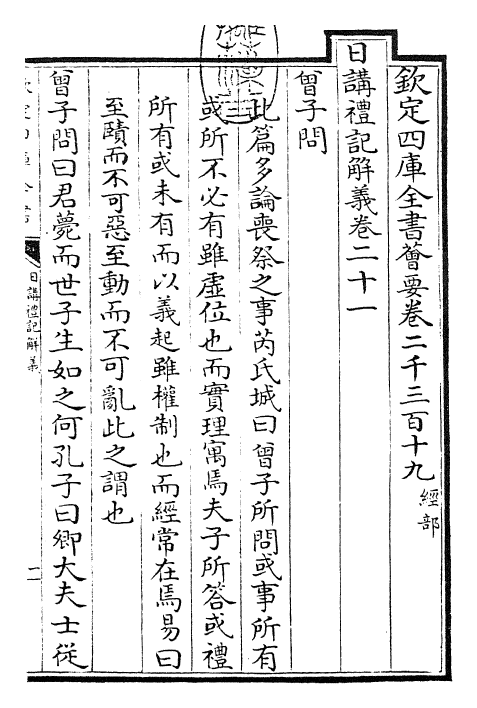 欽定四庫全書薈要卷二千三百十九 經部
日講禮記解義卷二十一
曾子問
此篇多論喪祭之事芮氏城曰曾子所問或事所有
或所不必有雖虛位也而實理寓焉夫子所答或禮
所有或未有而以義起雖權制也而經常在焉易曰
至賾而不可惡至動而不可亂此之謂也
曾子問曰君薨而世子生如之何孔子曰卿大夫士從
日講禮記解義
一